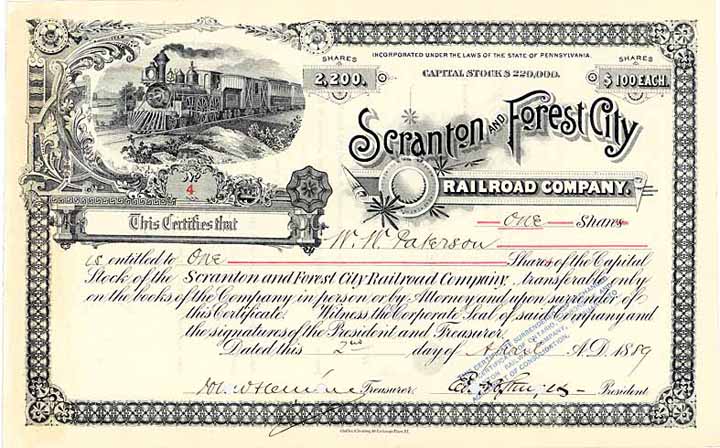 INCORPORATED UNDER THE LAWS OF THE STATE OF PENNSYLVANIA.
SHARES
2,200.
CAPITAL STOCK $ 220,000.
SHARES
$ 100 EACH.
Scranton AND Forest City
RAILROAD COMPANY.
No
4
This Certifies that
One Shares
W. W. Paterson
is entitled to One Shares of the Capital
Stock of the Scranton and Forest City Railroad Company, transferable only
on the books of the Company in person or by Attorney and upon surrender of
this Certificate. Witness the Corporate Seal of said Company and
the signatures of the President and Treasurer.
Dated this 2nd day of April A.D. 1889
Treasurer.
President
CERTIFICATE
ONTARIO,
RAILWAY COMPANY,
OF CONSOLIDATION.